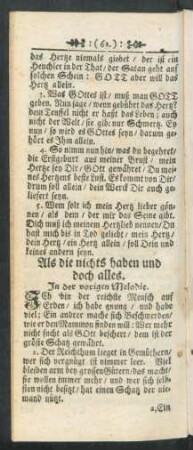 :(62.):
das Hertze niemals giebet / der ist ein
Heuchler in der That/ der Satan geht auf
solchen Schein: GOTT aber will das
Hertz allein.
3. Was GOttes ist/ muß man GOTT
geben. Nun sage/ wenn gebührt das Hertz?
dem Teufel nicht er hasst das Leben; auch
nicht der Welt/ sie gibt nur Schmertz. Ey
nun / so wird es GOttes seyn/ darum ge-
hört es Ihm allein.
4. So nimm nun hin/ was du begehrest/
die Erstgeburt aus meiner Brust / mein
Hertz sey Dir/ GOtt gewähret/ Du mei-
nes Hertzens beste Lust. Es kommt von Dir/
drum soll allein / dein Werck Dir auch ge-
liefert seyn.
5. Wem solt ich mein Hertz lieber gön-
nen/ als dem / der mir das Seine gibt.
Dich muß ich meinen Hertzlieb nennen/ Du
hast mich bis in Tod geliebt / mein Hertz/
dein Hertz / ein Hertz allein / soll Dein und
keines andern seyn.
Als die nichts haben und
doch alles.
In der vorigen Melodie.
Ich bin der reichste Mensch auf
Erden/ ich habe gnung / und habe
viel; Ein andrer mache sich Beschwerden/
wie er den Mammon finden will: Wer mehr
nicht sucht als GOtt beschert/ dem ist der
gröste Schatz gewährt.
2. Der Reichthum lieget in Gemüthern/
wer sich vergnügt ist nimmer leer. Viel
bleiben arm bey grossen Gütern/ das macht/
sie wollen immer mehr / und wer sich selb-
sten nicht besigt/ hat einen Schatz der nie-
mand nützt.